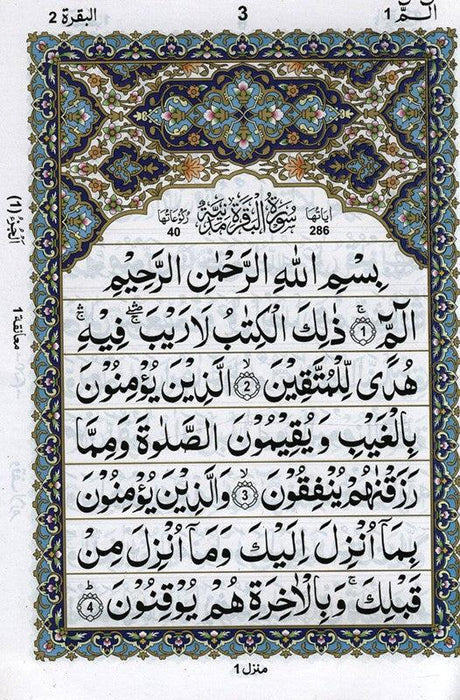 البقرة ٢
3
الٓمّٓ ١
اٰیاتُها 286
سُوْرَةُ الْبَقَرَةِ مَدَنِيَّةٌ
رُكُوعَاتُها 40
بِسْمِ اللّٰهِ الرَّحْمٰنِ الرَّحِيْمِ
الٓمّٓ ۚ﴿1﴾ ذٰلِكَ الْكِتٰبُ لَا رَيْبَ ۛۖۚ فِيْهِ ۛۚ
هُدًى لِّلْمُتَّقِيْنَ ۙ﴿2﴾ الَّذِيْنَ يُؤْمِنُوْنَ
بِالْغَيْبِ وَيُقِيْمُوْنَ الصَّلٰوةَ وَمِمَّا
رَزَقْنٰهُمْ يُنْفِقُوْنَ ۙ﴿3﴾ وَالَّذِيْنَ يُؤْمِنُوْنَ
بِمَآ اُنْزِلَ اِلَيْكَ وَمَآ اُنْزِلَ مِنْ
قَبْلِكَ ۚ وَبِالْاٰخِرَةِ هُمْ يُوْقِنُوْنَ ؕ﴿4﴾
اَلْجُزْءُ (1)
معانقة 1
منزل 1